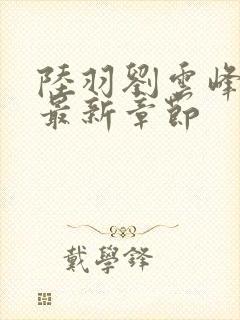 陸羽劉雲峰
最新章節
戴學鋒